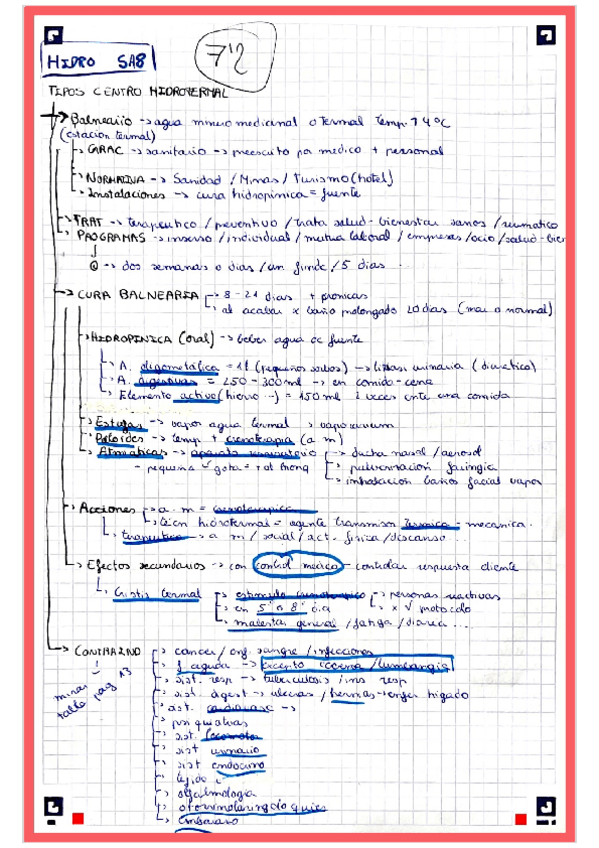 HIDRO SAB
TIPOS CENTRO HIDROTERMAL
Balneario -> agua mineromedicinal o termal temp. 14ºC
(estacion termal)
-> CARAC -> sanitario -> preescrito por medico + personal
-> NORMATIVA -> Sanidad / Minas / Turismo (hotel)
-> Instalaciones -> cura hidropinica = fuente
-> TRAT -> terapeutico / preventivo / trata salud-bienestar sanos / reumatico
PROGRAMAS -> inserso / individual / mutua laboral / empresas / ocio / salud-bien
-> dos semanas o dias / un finde / 5 dias ...
-> CURA BALNEARIA -> 8-21 dias + cronicas
-> al acabar x baño prolongado 20 dias (mar o normal)
-> HIDROPINICA (oral) -> beber agua de fuente
-> A. oligometálica = 1l (pequeños sorbos) -> litiasis urinaria (diuretico)
-> A. digestivas = 250-300ml -> en comida-cena
-> Elemento activo (hierro ...) = 150ml 2 veces ante una comida
-> Estufas -> vapor agua termal
-> Peloides -> temp + crenoterapia (a m)
-> Atmiatricas -> aparato respiratorio -> ducha nasal / aerosol
- pequeña gota = -> pulverizacion faringia
-> inhalacion baños facial vapor
-> Acciones -> a. m = crenoterapica
-> tecn hidrotermal = agente transmisor termica - mecanica.
-> terapeutica -> a m / social / act. fisica / descanso ...
-> Efectos secundarios -> con control medico - controlar respuesta cliente
-> Crisis termal -> estimulo crenoterapico -> personas reactivas
-> en 5º o 8º dia -> x protocolo
-> malestar general / fatiga / diarea ...
-> CONTRAIND -> cancer / enf. sangre / infecciones
mirar tabla pag 13
-> f. aguda -> excepto / lumbalgia
-> sist. resp -> tuberculosis / ins resp
-> sist. digest -> ulceras / hernias - enfer higado
-> sist. cardiovasc ->
-> psiquiatricas
-> sist. locomotor
-> sist urinario
-> sist endocrino
-> tejido
-> oftalmologia
-> otorrinolaringologico
-> embarazo